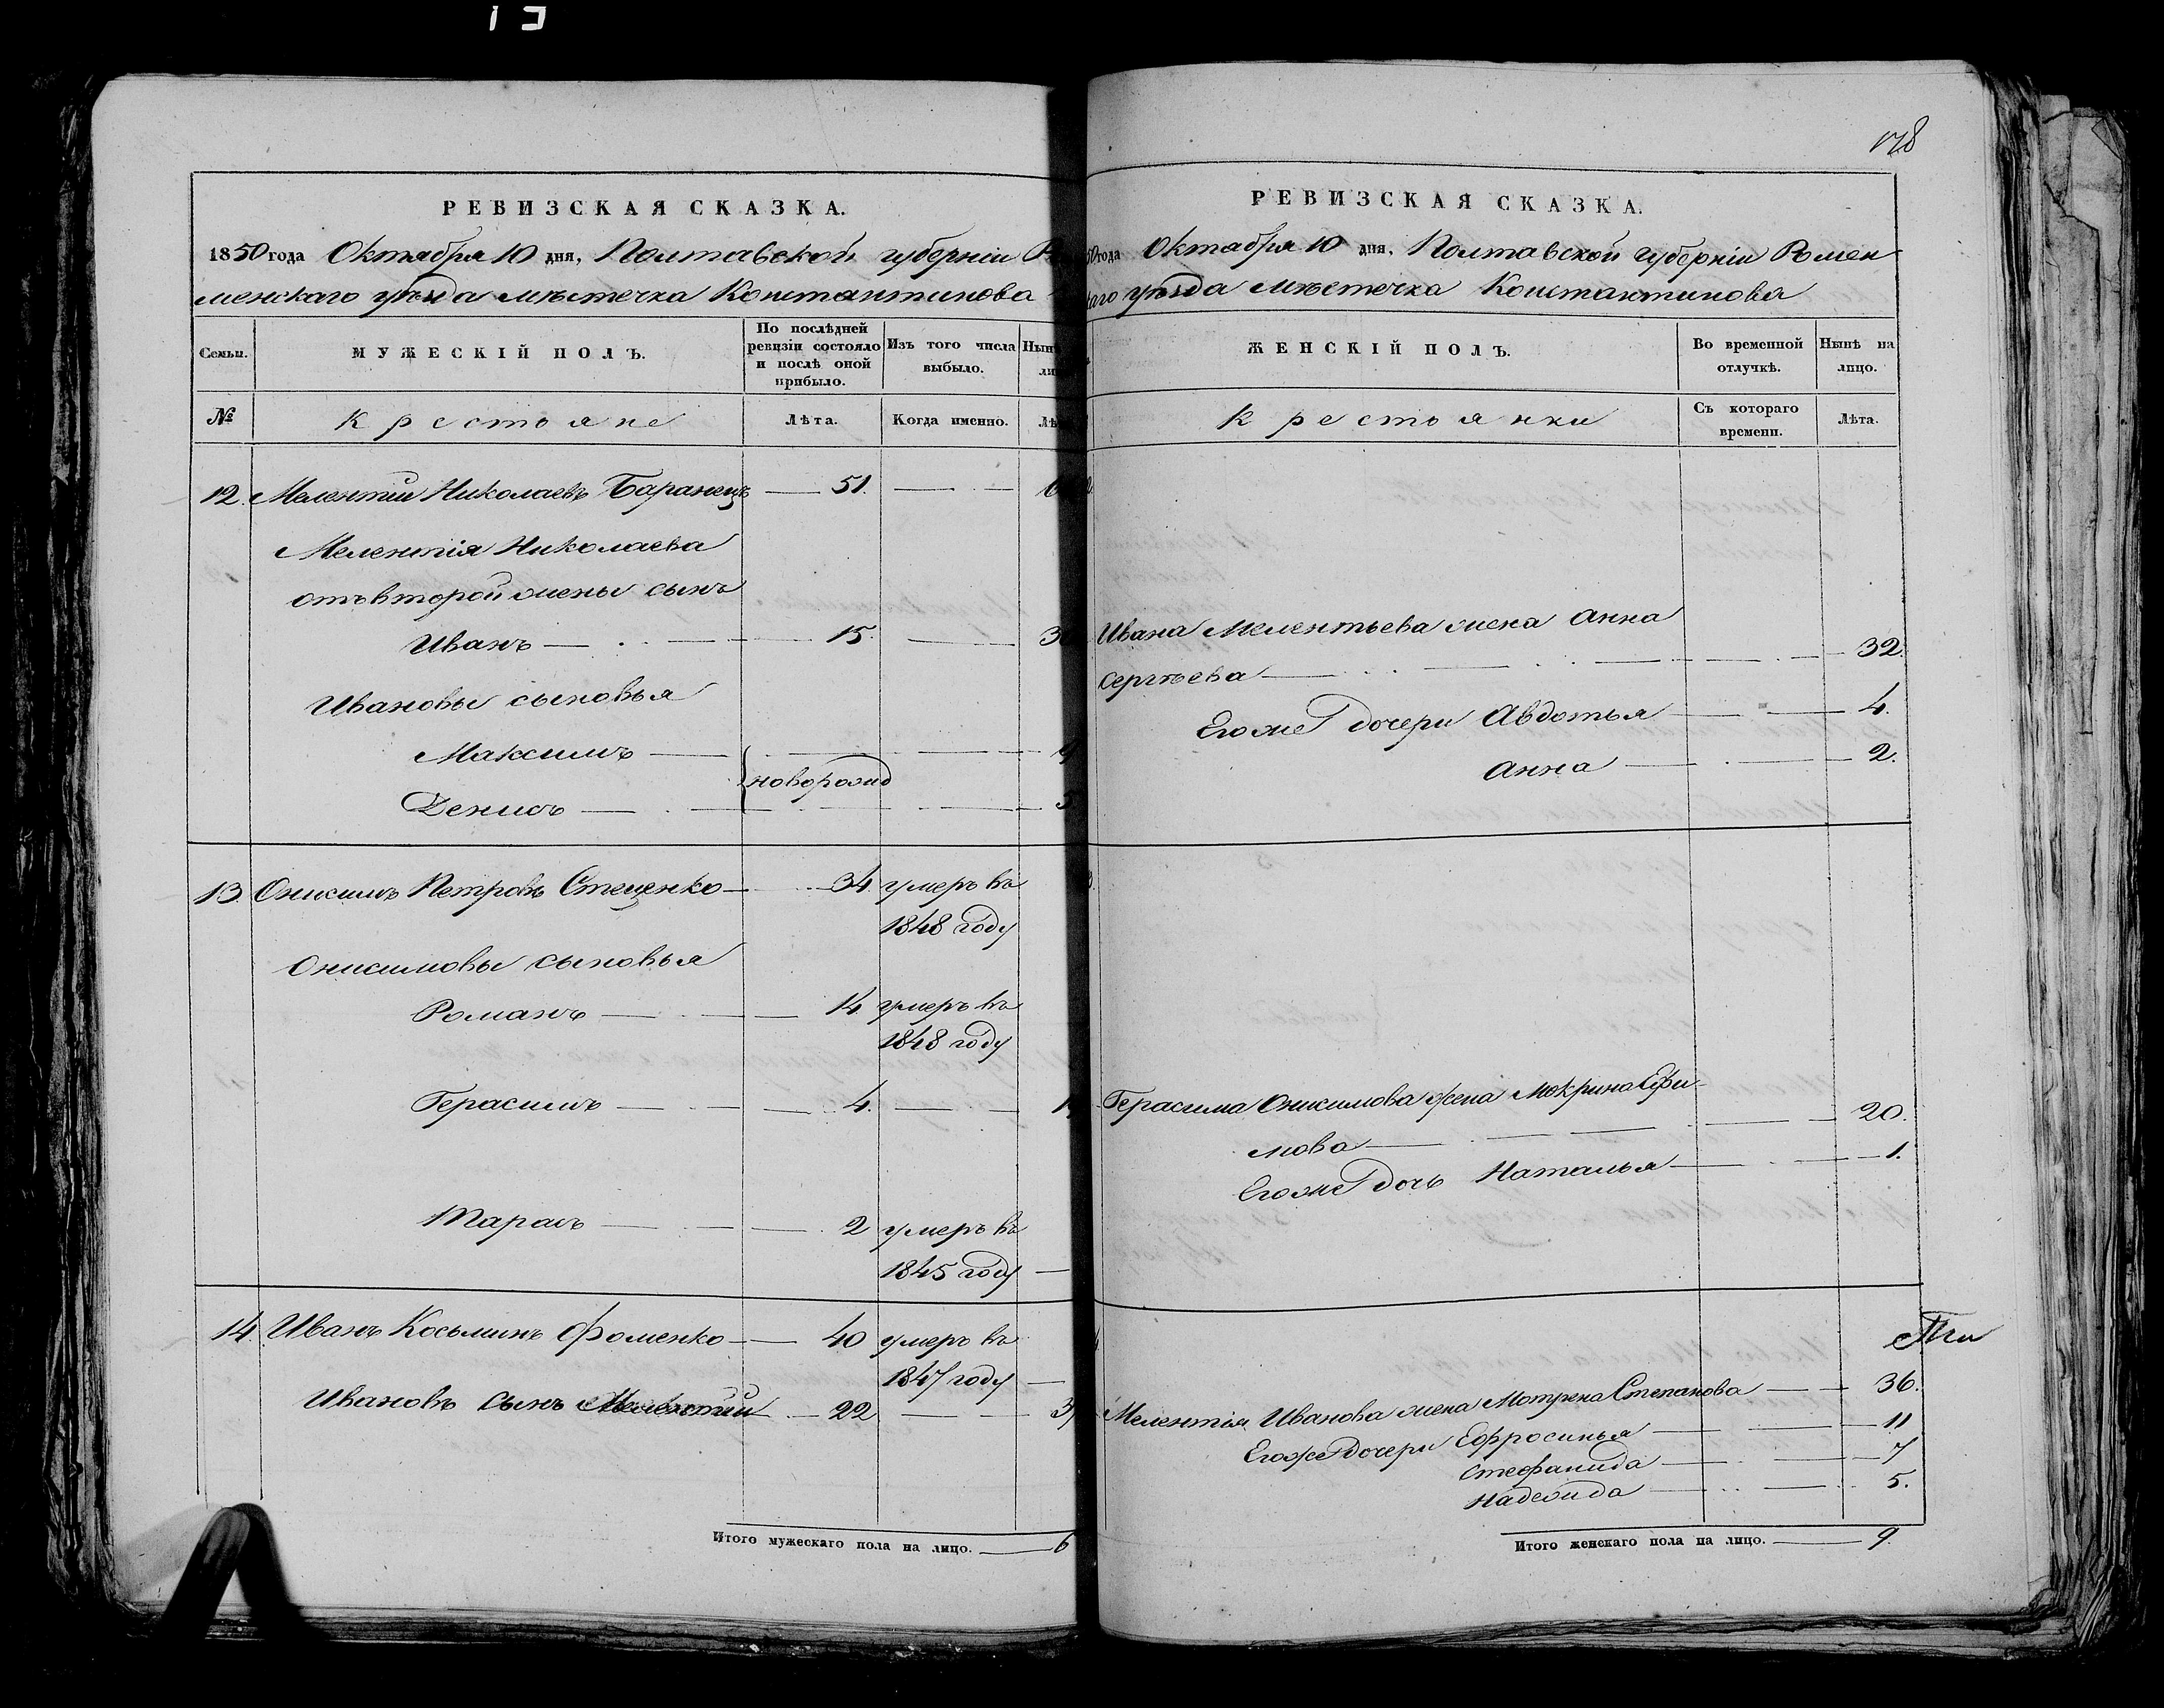 РЕВИЗСКАЯ СКАЗКА.
1850 года Октября 10 дня, Полтавской губерніи
менскаго уѣзда мѣстечка Константинова
Семьи.
МУЖЕСКІЙ ПОЛЪ.
По послѣдней
ревизіи состояло
и послѣ оной
прибыло.
Изъ того числа
выбыло.
№
Крестьяне
Лѣта.
Когда именно.
12. Мелентій Николаевъ Баранецъ — 51. —
Мелентія Николаева
отъ второй жены сынъ
Иванъ — 15. —
Ивановы сыновья
Максимъ —
новорожд
Денисъ —
13. Онисимъ Петровъ Стеценко — 34. умеръ въ
1848 году
Онисимовы сыновья
Романъ — 14. умеръ въ
1848 году
Герасимъ — 4. —
Тарасъ — 2 умеръ въ
1845 году —
14. Иванъ Косьминъ Фоменко — 40 умеръ въ
1847 году —
Ивановъ сынъ Мелентій — 22 —
Итого мужескаго пола на лицо. — 6
178
РЕВИЗСКАЯ СКАЗКА.
года Октября 10 дня, Полтавской губерніи Ромен
уѣзда мѣстечка Константинова
ЖЕНСКІЙ ПОЛЪ.
Во временной
отлучкѣ.
Нынѣ на
лицо.
Крестьянки
Съ котораго
времени.
Лѣта.
Ивана Мелентьева жена Анна
Сергѣева — 32.
Егоже дочери Авдотья — 4.
Анна — 2.
Герасима Онисимова жена Мокрина Ефи-
мова — 20.
Егоже дочь Наталья — 1.
Мелентія Иванова жена Мотрена Степанова — 36.
Егоже дочери Ефросинья — 11
Стефанида — 7
Надежда — 5.
Итого женскаго пола на лицо. — 9.